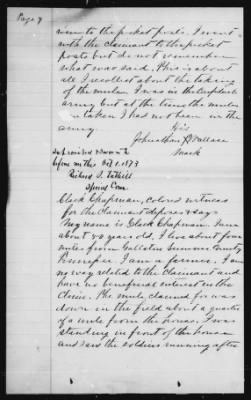 Page 7
to the picket posts. I went
with the claimant to the picket
posts but do not remember
what was said. This is about
all I recollect about the taking
of the mule. I was in the
army but at the time the mule
taken I had not been in the
army.
His
Johnathan X Wallace
mark
before me this Oct 1, 1873
Special Com
Clack Chapman, colored witness
for the claimant deposes & says
My name is Clack Chapman. I am
about 40 years old. I live about four
miles from Gallatin Sumner County
Tennessee. I am a farmer. I am
no way related to the claimant and
have no beneficial interest in the
claim. The mule claimed for was
down in the field about a quarter
of a mile from the house. I was
standing in front of the house
and saw the soldiers running after